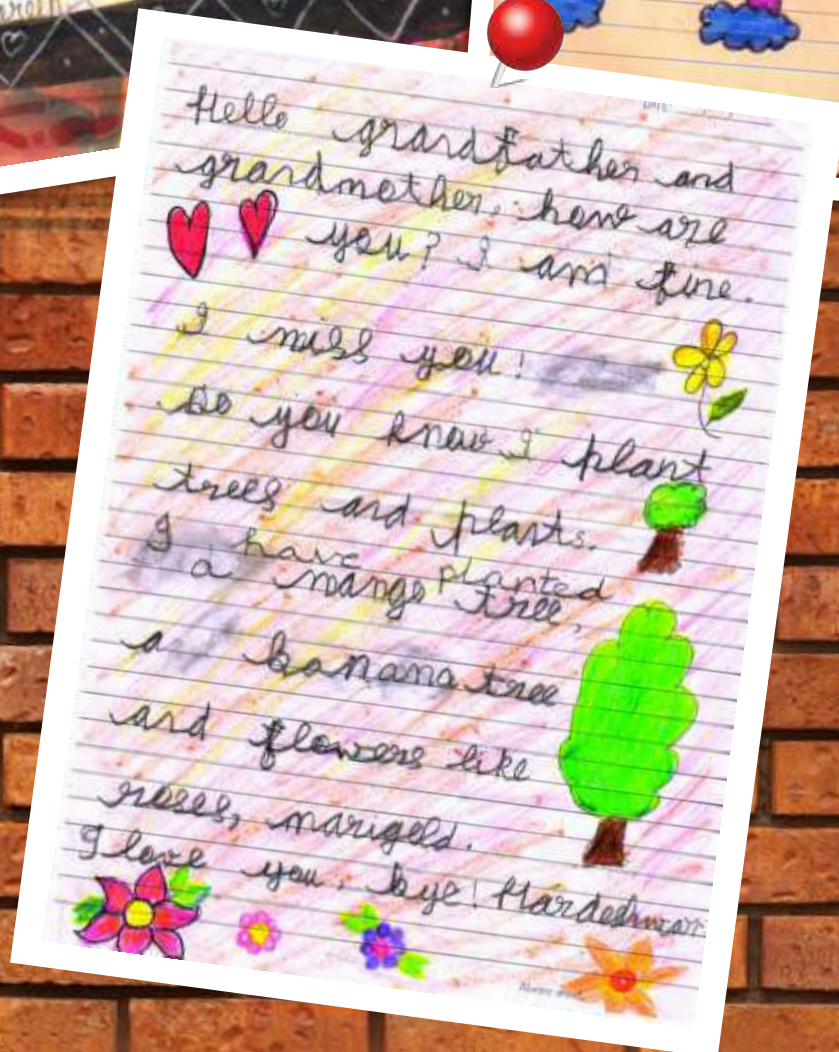 Hello grandfather and
grandmother, how are
you? I am fine.
I miss you!
Do you know I plant
trees and plants.
I have planted
a mango tree,
a banana tree
and flowers like
roses, marigold.
I love you. bye!